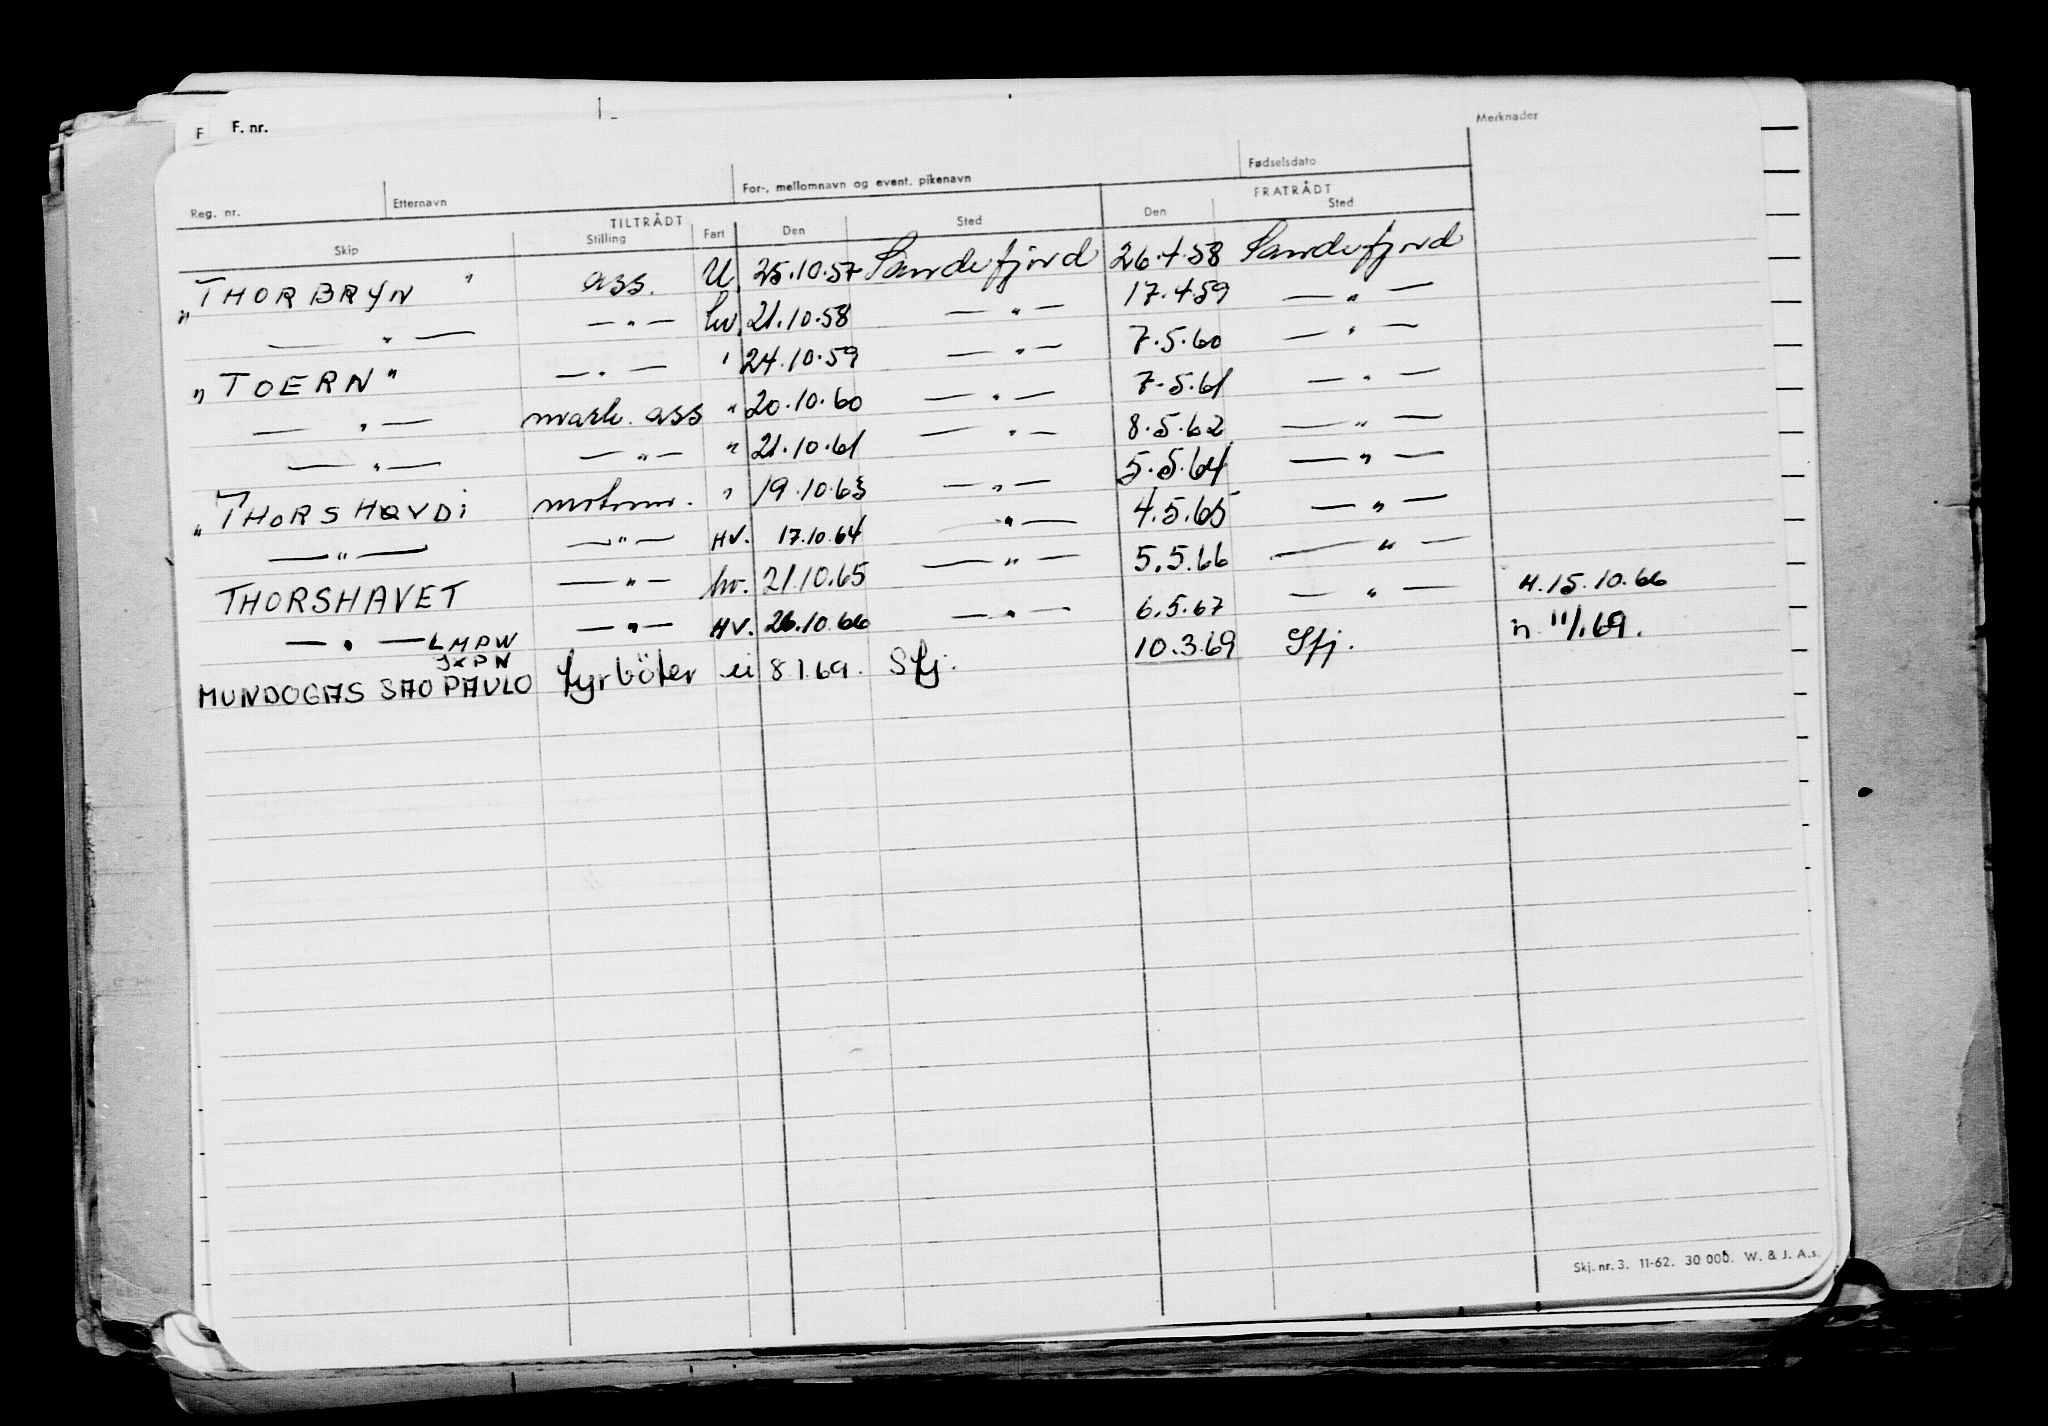 F F. nr.
Merknader
Reg. nr. Etternavn For-, mellomnavn og event. pikenavn Fødselsdato
TILTRÅDT FRATRÅDT
Skip Stilling Fart Den Sted Den Sted
"THORBRYN " ass. U. 25.10.57 Sandefjord 26.4.58 Sandefjord
— " — — " — hv. 21.10.58 — " — 17.4.59 — " —
"TOERN" — " — " 24.10.59 — " — 7.5.60 — " —
— " — mask. ass " 20.10.60 — " — 7.5.61 — " —
— " — — " — " 21.10.61 — " — 8.5.62 — " —
"THORSHØVDI motorm. " 19.10.63 — " — 5.5.64 — " —
— " — — " — HV. 17.10.64 — " — 4.5.65 — " —
THORSHAVET — " — hv. 21.10.65 — " — 5.5.66 — " —
— " — LMPW — " — HV. 26.10.66 — " — 6.5.67 — " — H.15.10.66
JXPN
MUNDOGAS SAO PAULO fyrböter u 8.1.69. Sfj. 10.3.69 Sfj. n 11/1.69.
Skj. nr. 3. 11-62. 30 000. W. & J. A.s.